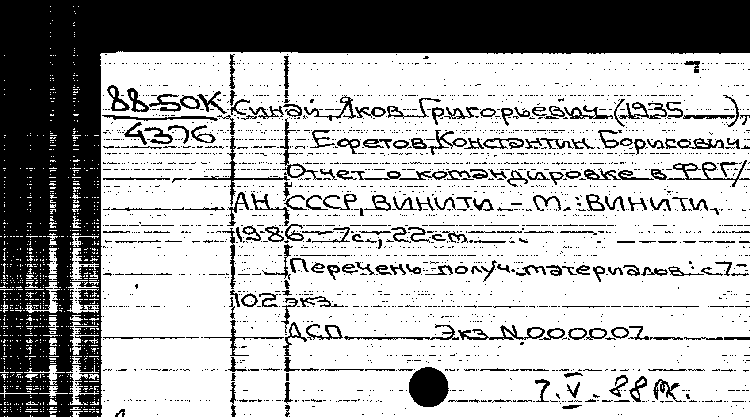 7
88-50К Синай, Яков Григорьевич (1935 ),
4376 Ефетов, Константин Борисович
Отчет о командировке в ФРГ/
АН СССР, ВИНИТИ. - М.: ВИНИТИ,
1986. - 7с.; 22 см.
Перечень получ. материалов: с 7-
102 экз.
ДСП. Экз N 000007
7.V.88